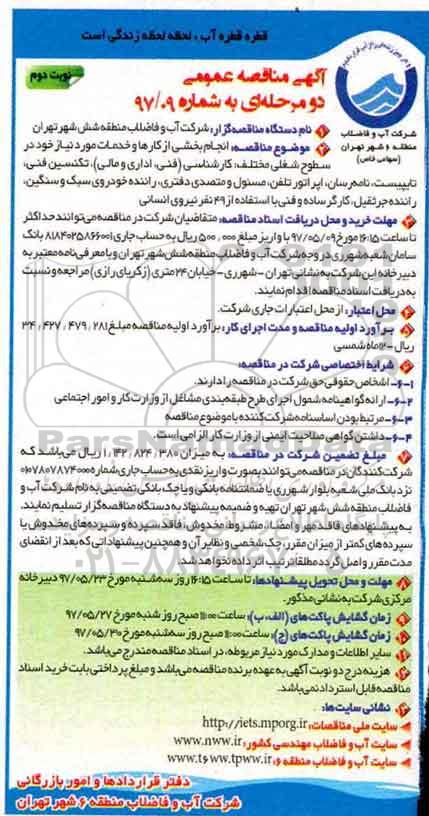 قطره قطره آب، لحظه لحظه زندگی است
نوبت دوم
آگهی مناقصه عمومی
دو مرحله‌ای به شماره ۹۷/۰۹
شرکت آب و فاضلاب
منطقه ۶ شهر تهران
(سهامی خاص)
۱ نام دستگاه مناقصه‌گزار: شرکت آب و فاضلاب منطقه شش شهر تهران
۲ موضوع مناقصه: انجام بخشی از کارها و خدمات مورد نیاز خود در
سطوح شغلی مختلف: کارشناسی (فنی، اداری و مالی)، تکنسین فنی،
تایپیست، نامه‌رسان، اپراتور تلفن، مسئول و متصدی دفتری، راننده خودروی سبک و سنگین،
راننده جرثقیل، کارگر ساده و فنی با استفاده از ۴۹ نفر نیروی انسانی
۳ مهلت خرید و محل دریافت اسناد مناقصه: متقاضیان شرکت در مناقصه می‌توانند حداکثر
تا ساعت ۱۶:۱۵ مورخ ۹۷/۰۵/۰۹ با واریز مبلغ ۵۰۰,۰۰۰ ریال به حساب جاری ۸۱۸۴۰۲۵۸۶۶۰۰۱ بانک
سامان شعبه شهرری در وجه شرکت آب و فاضلاب منطقه شش شهر تهران و با معرفی نامه معتبر به
دبیرخانه این شرکت به نشانی تهران - شهرری - خیابان ۲۴ متری (زکریای رازی) مراجعه و نسبت
به دریافت اسناد مناقصه اقدام نمایند.
۴ محل اعتبار: از محل اعتبارات جاری شرکت.
۵ برآورد اولیه مناقصه و مدت اجرای کار: برآورد اولیه مناقصه مبلغ ۳۴,۴۲۷,۴۷۹,۲۸۱
ریال - ۱۲ ماه شمسی
۶ شرایط اختصاصی شرکت در مناقصه:
۶-۱- اشخاص حقوقی حق شرکت در مناقصه را دارند.
۶-۲- ارائه گواهینامه شمول اجرای طرح طبقه‌بندی مشاغل از وزارت کار و امور اجتماعی
۶-۳- مرتبط بودن اساسنامه شرکت‌کننده با موضوع مناقصه
۶-۴- داشتن گواهی صلاحیت ایمنی از وزارت کار الزامی است.
۷ مبلغ تضمین شرکت در مناقصه: به میزان ۱,۱۴۲,۸۲۴,۳۸۰ ریال می‌باشد که
شرکت‌کنندگان در مناقصه می‌توانند بصورت واریز نقدی به حساب جاری شماره ۰۱۰۷۸۰۷۸۷۴۰۰۰
نزد بانک ملی شعبه بلوار شهرری یا ضمانتنامه بانکی و یا چک بانکی تضمینی به نام شرکت آب و
فاضلاب منطقه شش شهر تهران تهیه و ضمیمه پیشنهاد به دستگاه مناقصه‌گزار تسلیم نمایند.
به پیشنهادهای فاقد مهر و امضا، مشروط، مخدوش، فاقد سپرده و سپرده‌های مخدوش یا
سپرده‌های کمتر از میزان مقرر، چک شخصی و نظایر آن و همچنین پیشنهاداتی که بعد از انقضای
مدت مقرر واصل گردد مطلقا ترتیب اثر داده نخواهد شد.
۸ مهلت و محل تحویل پیشنهادها: تا ساعت ۱۶:۱۵ روز سه‌شنبه مورخ ۹۷/۰۵/۲۳ دبیرخانه
مرکزی شرکت به نشانی مذکور.
۹ زمان گشایش پاکت‌های (الف، ب): ساعت ۱۱:۰۰ صبح روز شنبه مورخ ۹۷/۰۵/۲۷
۱۰ زمان گشایش پاکت‌های (ج): ساعت ۱۱:۰۰ صبح روز سه‌شنبه مورخ ۹۷/۰۵/۳۰
۱۱ سایر اطلاعات و مدارک مورد نیاز مربوطه، در اسناد مناقصه مندرج می‌باشد.
۱۲ هزینه درج دو نوبت آگهی به عهده برنده مناقصه می‌باشد و مبلغ پرداختی بابت خرید اسناد
مناقصه قابل استرداد نمی‌باشد.
۱۳ نشانی سایت‌ها:
سایت ملی مناقصات: http://iets.mporg.ir
سایت آب و فاضلاب مهندسی کشور: www.nww.ir
سایت آب و فاضلاب منطقه ۶: www.t6ww.tpww.ir
دفتر قراردادها و امور بازرگانی
شرکت آب و فاضلاب منطقه ۶ شهر تهران